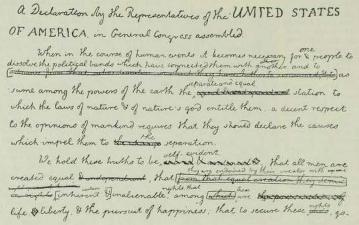 A Declaration by the Representatives of the UNITED STATES
OF AMERICA, in General Congress assembled.
When in the course of human events it becomes necessary for a people to
one
dissolve the political bands which have connected them with another, and to
as-
separate and equal
sume among the powers of the earth the station to
which the laws of nature & of nature's god entitle them, a decent respect
to the opinions of mankind requires that they should declare the causes
which impel them to the separation.
the
self-evident
We hold these truths to be that all men are
they are endowed by their creator with
created equal & independant; that from that equal creation they derive
rights that these
inherent & inalienable among which are
life & liberty, & the pursuit of happiness; that to secure these rights, go-